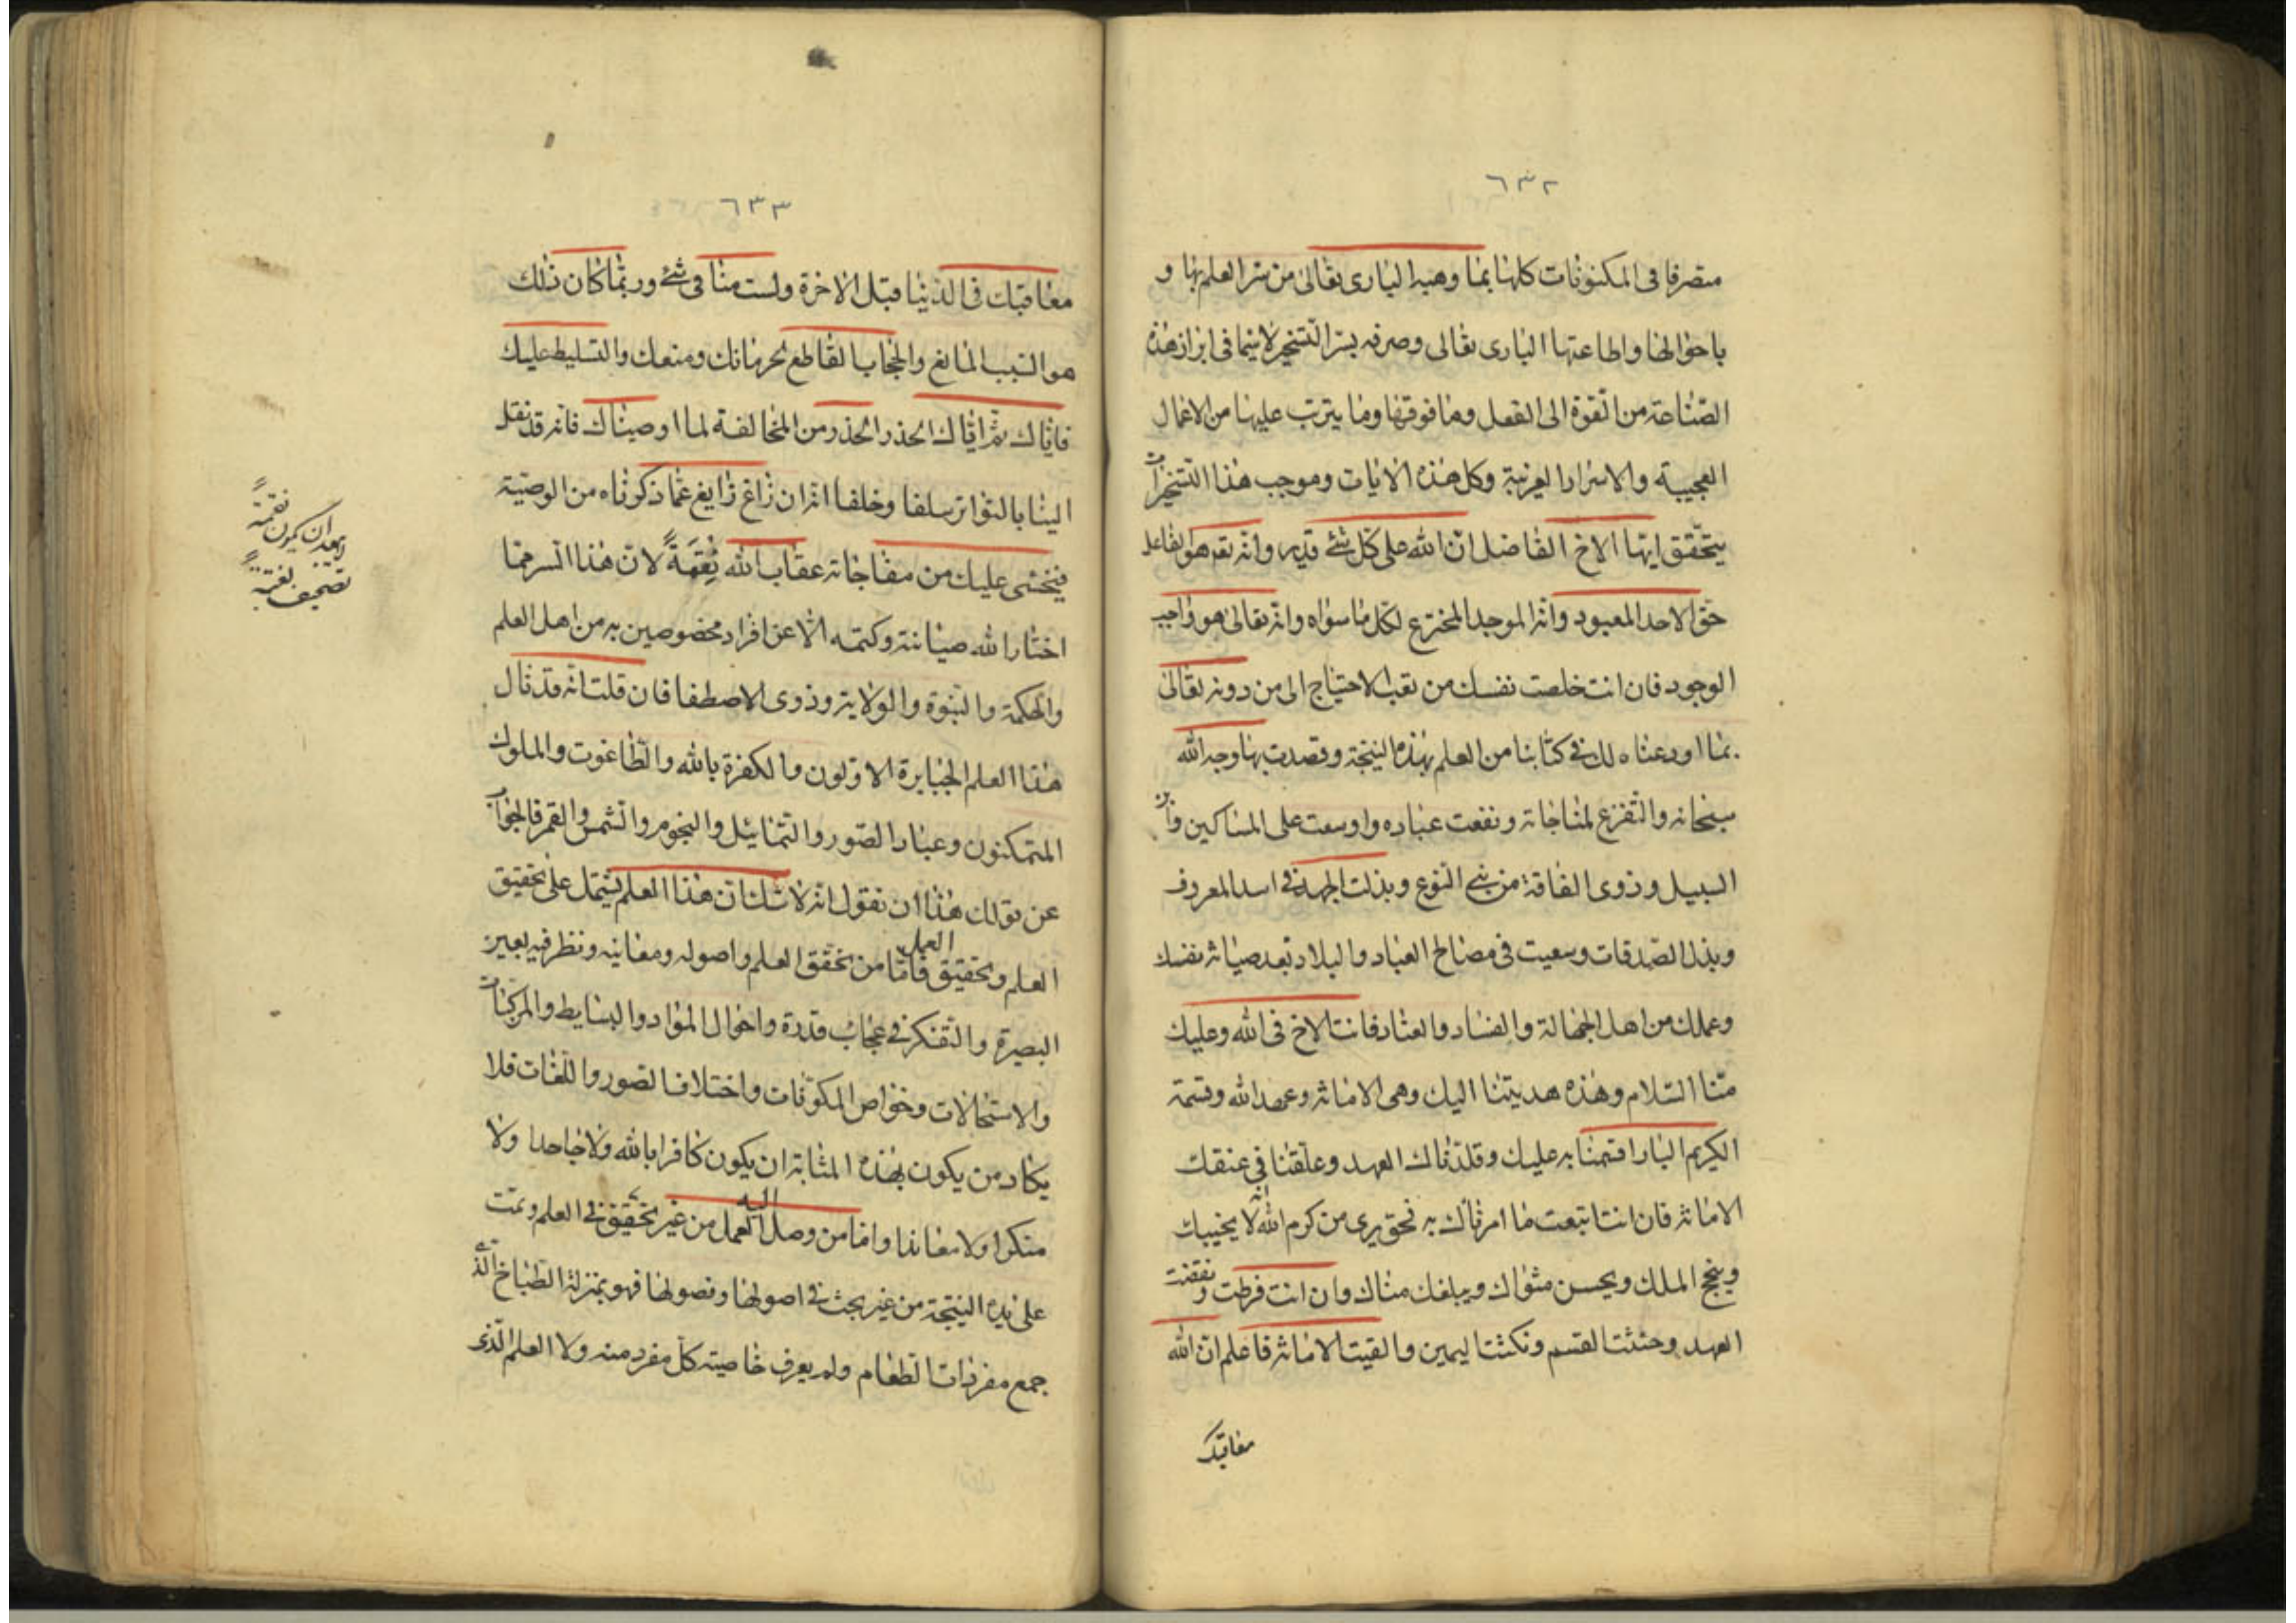 ٦٣٢
متصرفا فى المكنونات كلها بما وهبه البارى تعالى من سر العلم بها و
باحوالها واطاعتها البارى تعالى وصرفه بسر التسخير لاسيما فى ابراز هذه
الصناعة من القوة الى الفعل وما فوقها وما يترتب عليها من الاعمال
العجيبة والاسرار الغريبة وكل هذه الايات وموجب هذا التسخيرات
يتحقق ايها الاخ الفاضل ان الله على كل شئ قدير وانه هو الفاعل
حق الاحد المعبود وانه الموجد المخترع لكل ما سواه وانه تعالى هو واجب
الوجود فان انت خلصت نفسك من تعب الاحتياج الى من دونه تعالى
بما اودعناه لك فى كتابنا من العلم بهذه النتيجة وقصدت بها وجه الله
سبحانه والتفرغ لمناجاته ونفعت عباده واوسعت على المساكين وابن
السبيل وذوى الفاقة من بنى النوع وبذلت الجهد فى اسد المعروف
وبذل الصدقات وسعيت فى مصالح العباد والبلاد بعد صيانة نفسك
وعملك من اهل الجهالة والفساد والعناد فانت الاخ فى الله وعليك
منا السلام وهذه هديتنا اليك وهى الامانة وعهد الله وقسمة
الكريم البار اقسمنا به عليك وقلدناك العهد وعلقنا فى عنقك
الامانة فان انت اتبعت ما امرناك به فحق يرى من كرم الله انه لا يخيبك
وينجح الملك ويحسن مثواك ويبلغك مناك وان انت فرطت ونقضت
العهد وحنثت القسم ونكثت اليمين والقيت الامانة فاعلم ان الله
معاقبك
٦٣٣
معاقبك فى الدنيا قبل الاخرة ولست منا فى شئ وربما كان ذلك
هو السبب المانع والحجاب القاطع لحرمانك ومنعك والتسليط عليك
فاياك ثم اياك الحذر الحذر من المخالفة لما اوصيناك فانه قد نقل
الينا بالتواتر سلفا وخلفا انه ان زاغ زايغ عما ذكرناه من الوصية
فيخشى عليك من مفاجاته عقاب الله نقمة لان هذا السر مما
اختار الله صيانته وكتمه الا عن افراد مخصوصين به من اهل العلم
والحكمة والنبوة والولاية وذوى الاصطفا فان قلت انه قد نال
هذا العلم الجبابرة الاولون والكفرة بالله والطاغوت والملوك
المتمكنون وعباد الصور والتماثيل والنجوم والشمس والقمر فالجواب
عن قولك هذا ان نقول انه لا شك ان هذا العلم يشتمل على تحقيق
العلم وتحقيق العمل فاما من تحقق العلم واصوله ومعانيه ونظر فيه بعين
البصيرة والتفكر فى عجائب قدرة واحوال المواد والبسايط والمركبات
والاستحالات وخواص المكونات واختلاف الصور واللغات فلا
يكاد من يكون بهذه المثابة ان يكون كافرا بالله ولا جاحدا ولا
منكرا ولا معاندا واما من وصل اليه العمل من غير تحقيق فى العلم وتمت
على يده النتيجة من غير بحث فى اصولها وفصولها فهو بمنزلة الطباخ الذى
جمع مفردات الطعام ولم يعرف خاصية كل مفرد منه ولا العلم الذى
نقمة
ان يكون
تصحيف بغتة